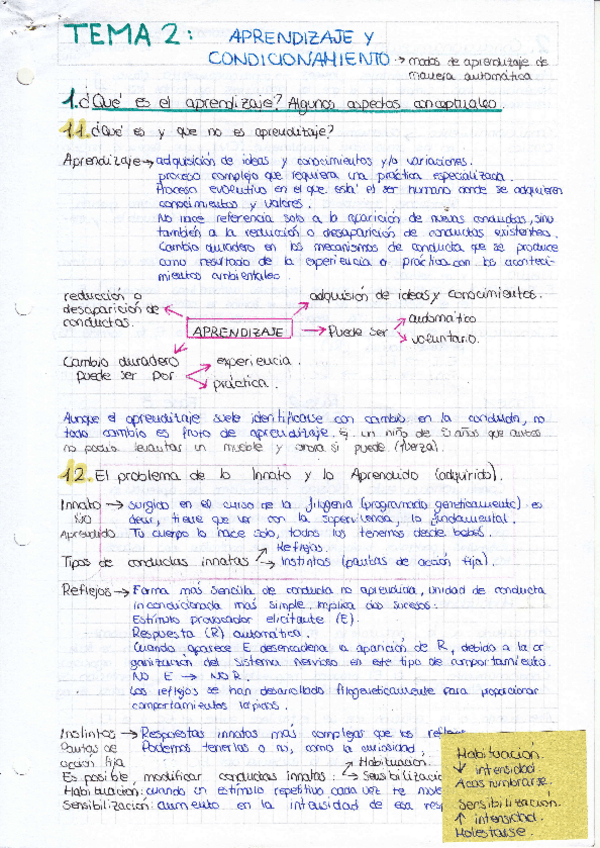 TEMA 2: APRENDIZAJE Y
CONDICIONAMIENTO → modos de aprendizaje de
manera automática
1. ¿Qué es el aprendizaje? Algunos aspectos conceptuales.
1.1. ¿Qué es y que no es aprendizaje?
Aprendizaje → adquisición de ideas y conocimientos y/o variaciones.
proceso complejo que requiera una práctica especializada.
Proceso evolutivo en el que está el ser humano donde se adquieren
conocimientos y valores.
No hace referencia solo a la aparición de nuevas conductas, sino
también a la reducción o desaparición de conductas existentes.
Cambio duradero en los mecanismos de conducta que se produce
como resultado de la experiencia o práctica con los aconteci-
mientos ambientales
reducción o
desaparición de
conductas.
adquisión de ideas y conocimientos.
APRENDIZAJE → Puede ser
automático
voluntario.
Cambio duradero
puede ser por
experiencia.
práctica.
Aunque el aprendizaje suele identificarse con cambio en la conducta, no
todo cambio es fruto de aprendizaje. Ej. un niño de 5 años que antes
no podía levantar un mueble y ahora si puede (fuerza).
1.2. El problema de lo Innato y lo Aprendido (adquirido).
Innato → surgido en el curso de la filogenia (programado genéticamente) es
NO decir, tiene que ver con la supervivencia, lo fundamental.
Aprendido Tu cuerpo lo hace solo, todos los tenemos desde bebés.
Tipos de conductas innatas
Reflejos.
Instintos (pautas de acción fija).
Reflejos → Forma más sencilla de conducta no aprendida, unidad de conducta
incondicionada más simple. Implica dos sucesos:
Estímulo provocador elicitante (E).
Respuesta (R) automática.
Cuando aparece E desencadena la aparición de R, debido a la or
ganización del sistema nervioso en este tipo de comportamiento.
NO E → NO R.
Los reflejos se han desarrollado filogenéticamente para proporcionar
comportamientos rápidos.
Instintos → Respuestas innatas más complejas que los refle
Pautas de Podemos tenerlas o no, como la curiosidad.
acción fija
Es posible, modificar conductas innatas:
Habituación.
Sensibilizació
Habituación: cuando un estímulo repetitivo cada vez te mole
Sensibilización: aumento en la intensidad de esa resp
Habituación.
↓ intensidad.
Acostumbrarse.
Sensibilización.
↑ intensidad.
Molestarse.